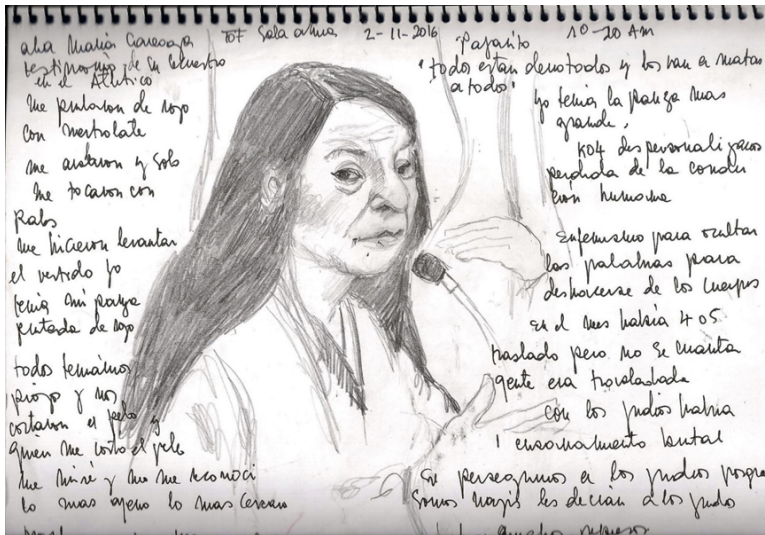 Ana María Careaga TOF Sala AMIA 2-11-2016 Pajarito 10-20 AM
testimonio de su secuestro
en el Atlético
me pintaron de rojo
con mertiolate
me ataron y solo
me tocaron con
Palos
me hicieron levantar
el vestido yo
tenía mi panza
pintada de rojo
todos teníamos
piojo y nos
cortaron el pelo y
quien me cortó el pelo
me miré y no me reconocí
lo mas ajeno lo mas cercano
"todos están denotados y los van a matar
a todos"
yo tenía la panza mas
grande,
K04 despersonalizarnos
perdida de la condi
ción humana
Eufemismo para ocultar
las palabras para
deshacerse de los cuerpos
en el mes había 4 o 5
traslado pero no se cuanta
gente era trasladada
con los judios había
1 ensañamiento brutal
Se perseguimos a los judios porque
Somos nazis les decían a los judios